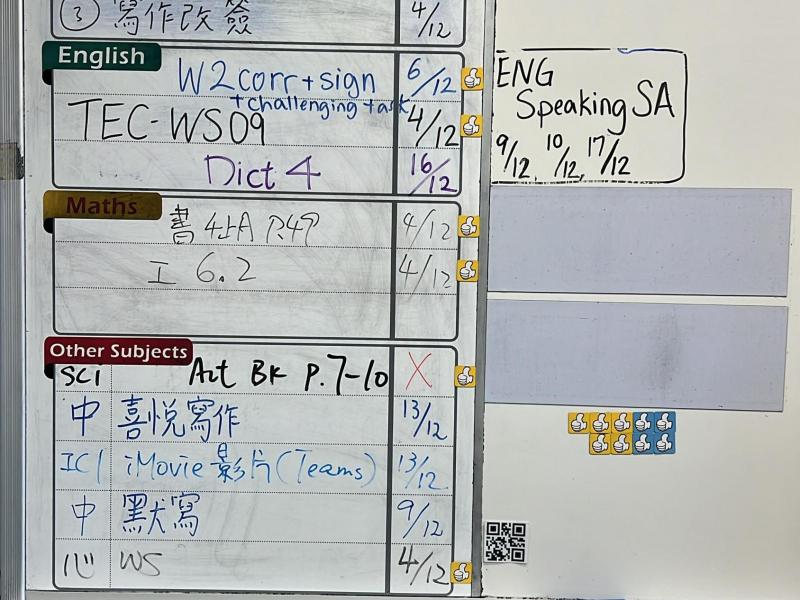 ③ 寫作改簽 4/12
English
W2corr+sign 6/12
+challenging task
TEC-WS09 4/12
Dict 4 16/12
Maths
書 4上A P.49 4/12
工 6.2 4/12
Other Subjects
SCI Act BK P.7-10 X
中 喜悅寫作 13/12
ICT iMovie 影片(Teams) 13/12
中 默寫 9/12
心 WS 4/12
ENG
Speaking SA
9/12, 10/12, 17/12